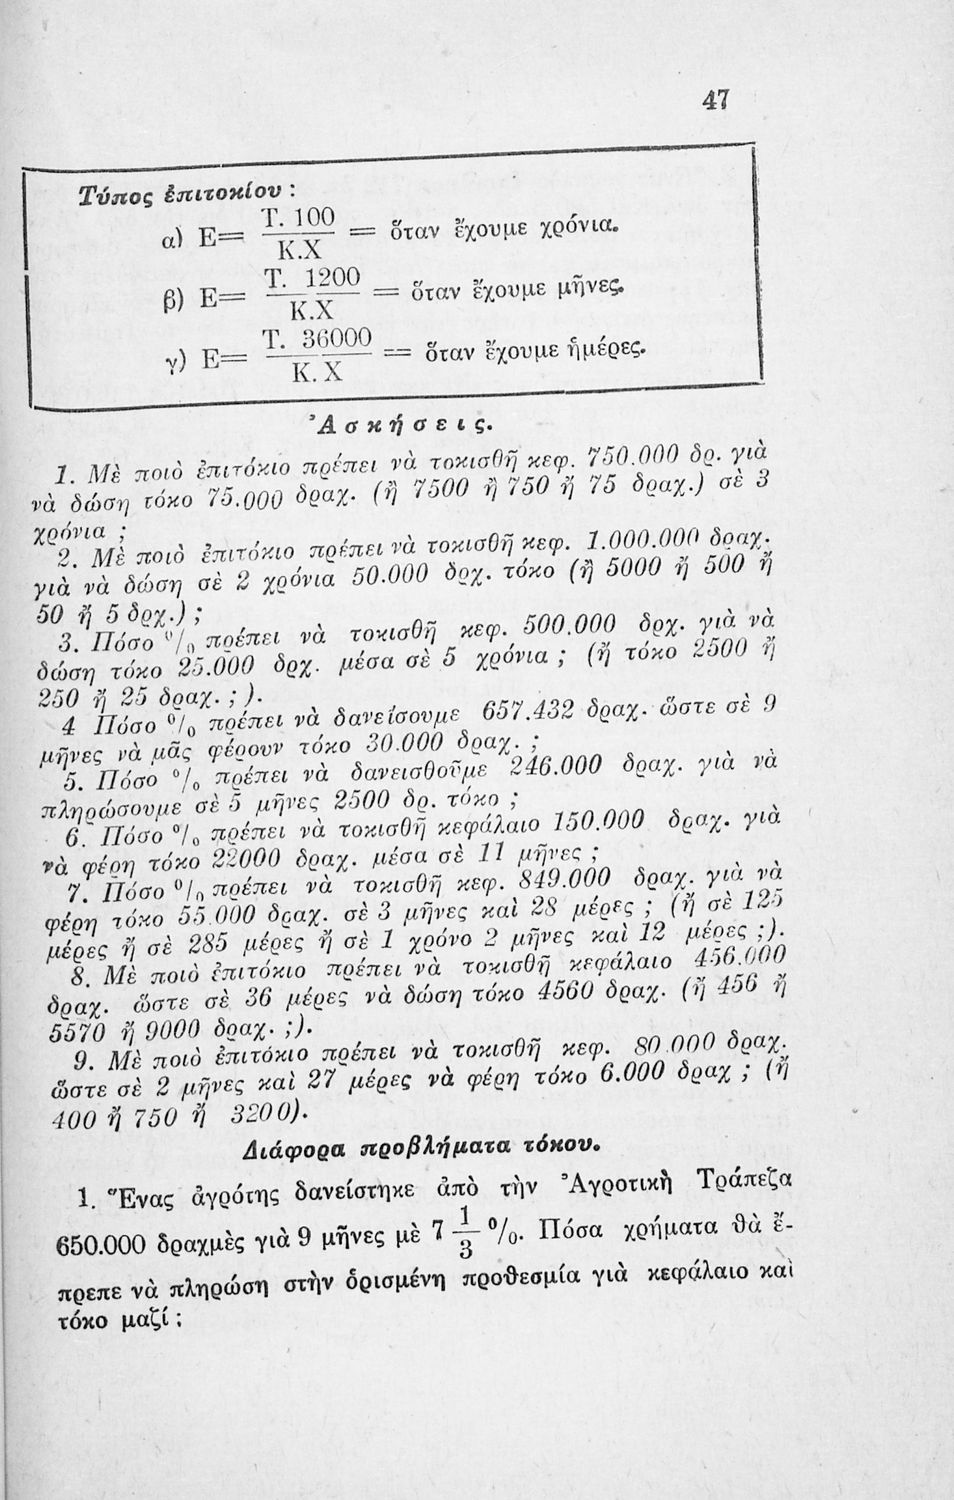 47
Τύπος ἐπιτοκίου :
α) Ε= Τ. 100 / Κ.Χ = ὅταν ἔχουμε χρόνια.
β) Ε= Τ. 1200 / Κ.Χ = ὅταν ἔχουμε μῆνες.
γ) Ε= Τ. 36000 / Κ.Χ = ὅταν ἔχουμε ἡμέρες.
Ἀσκήσεις.
1. Μὲ ποιὸ ἐπιτόκιο πρέπει νὰ τοκισθῆ κεφ. 750.000 δρ. γιὰ
νὰ δώση τόκο 75.000 δραχ. (ἢ 7500 ἢ 750 ἢ 75 δραχ.) σὲ 3
χρόνια ;
2. Μὲ ποιὸ ἐπιτόκιο πρέπει νὰ τοκισθῆ κεφ. 1.000.000 δραχ.
γιὰ νὰ δώση σὲ 2 χρόνια 50.000 δρχ. τόκο (ἢ 5000 ἢ 500 ἢ
50 ἢ 5 δρχ.) ;
3. Πόσο ⁰/₀ πρέπει νὰ τοκισθῆ κεφ. 500.000 δρχ. γιὰ νὰ
δώση τόκο 25.000 δρχ. μέσα σὲ 5 χρόνια ; (ἢ τόκο 2500 ἢ
250 ἢ 25 δραχ. ; ).
4 Πόσο ⁰/₀ πρέπει νὰ δανείσουμε 657.432 δραχ. ὥστε σὲ 9
μῆνες νὰ μᾶς φέρουν τόκο 30.000 δραχ. ;
5. Πόσο ⁰/₀ πρέπει νὰ δανεισθοῦμε 246.000 δραχ. γιὰ νὰ
πληρώσουμε σὲ 5 μῆνες 2500 δρ. τόκο ;
6. Πόσο ⁰/₀ πρέπει νὰ τοκισθῆ κεφάλαιο 150.000 δραχ. γιὰ
νὰ φέρη τόκο 22000 δραχ. μέσα σὲ 11 μῆνες ;
7. Πόσο ⁰/₀ πρέπει νὰ τοκισθῆ κεφ. 849.000 δραχ. γιὰ νὰ
φέρη τόκο 55.000 δραχ. σὲ 3 μῆνες καὶ 28 μέρες ; (ἢ σὲ 125
μέρες ἢ σὲ 285 μέρες ἢ σὲ 1 χρόνο 2 μῆνες καὶ 12 μέρες ;).
8. Μὲ ποιὸ ἐπιτόκιο πρέπει νὰ τοκισθῆ κεφάλαιο 456.000
δραχ. ὥστε σὲ 36 μέρες νὰ δώση τόκο 4560 δραχ. (ἢ 456 ἢ
5570 ἢ 9000 δραχ. ;).
9. Μὲ ποιὸ ἐπιτόκιο πρέπει νὰ τοκισθῆ κεφ. 80.000 δραχ.
ὥστε σὲ 2 μῆνες καὶ 27 μέρες νὰ φέρη τόκο 6.000 δραχ ; (ἢ
400 ἢ 750 ἢ 3200).
Διάφορα προβλήματα τόκου.
1. Ἕνας ἀγρότης δανείστηκε ἀπὸ τὴν Ἀγροτικὴ Τράπεζα
650.000 δραχμὲς γιὰ 9 μῆνες μὲ 7 1/3 ⁰/₀. Πόσα χρήματα θὰ ἔ-
πρεπε νὰ πληρώση στὴν ὁρισμένη προθεσμία γιὰ κεφάλαιο καὶ
τόκο μαζί ;